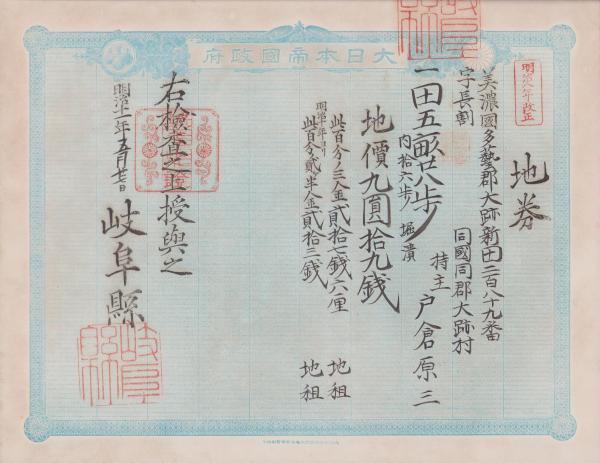 大日本帝國政府
明治八年改正
地券
美濃國多藝郡大跡新田二百八十九番
字長割
同國同郡大跡村
持主 戸倉原三
一田五畝廿八歩
内拾六歩 堀潰
地價九圓拾九錢
此百分ノ三金貳拾七錢六厘 地租
明治十年ヨリ
此百分ノ貳半金貳拾三錢 地租
右檢査之上授與之
明治十一年五月廿日
岐阜縣